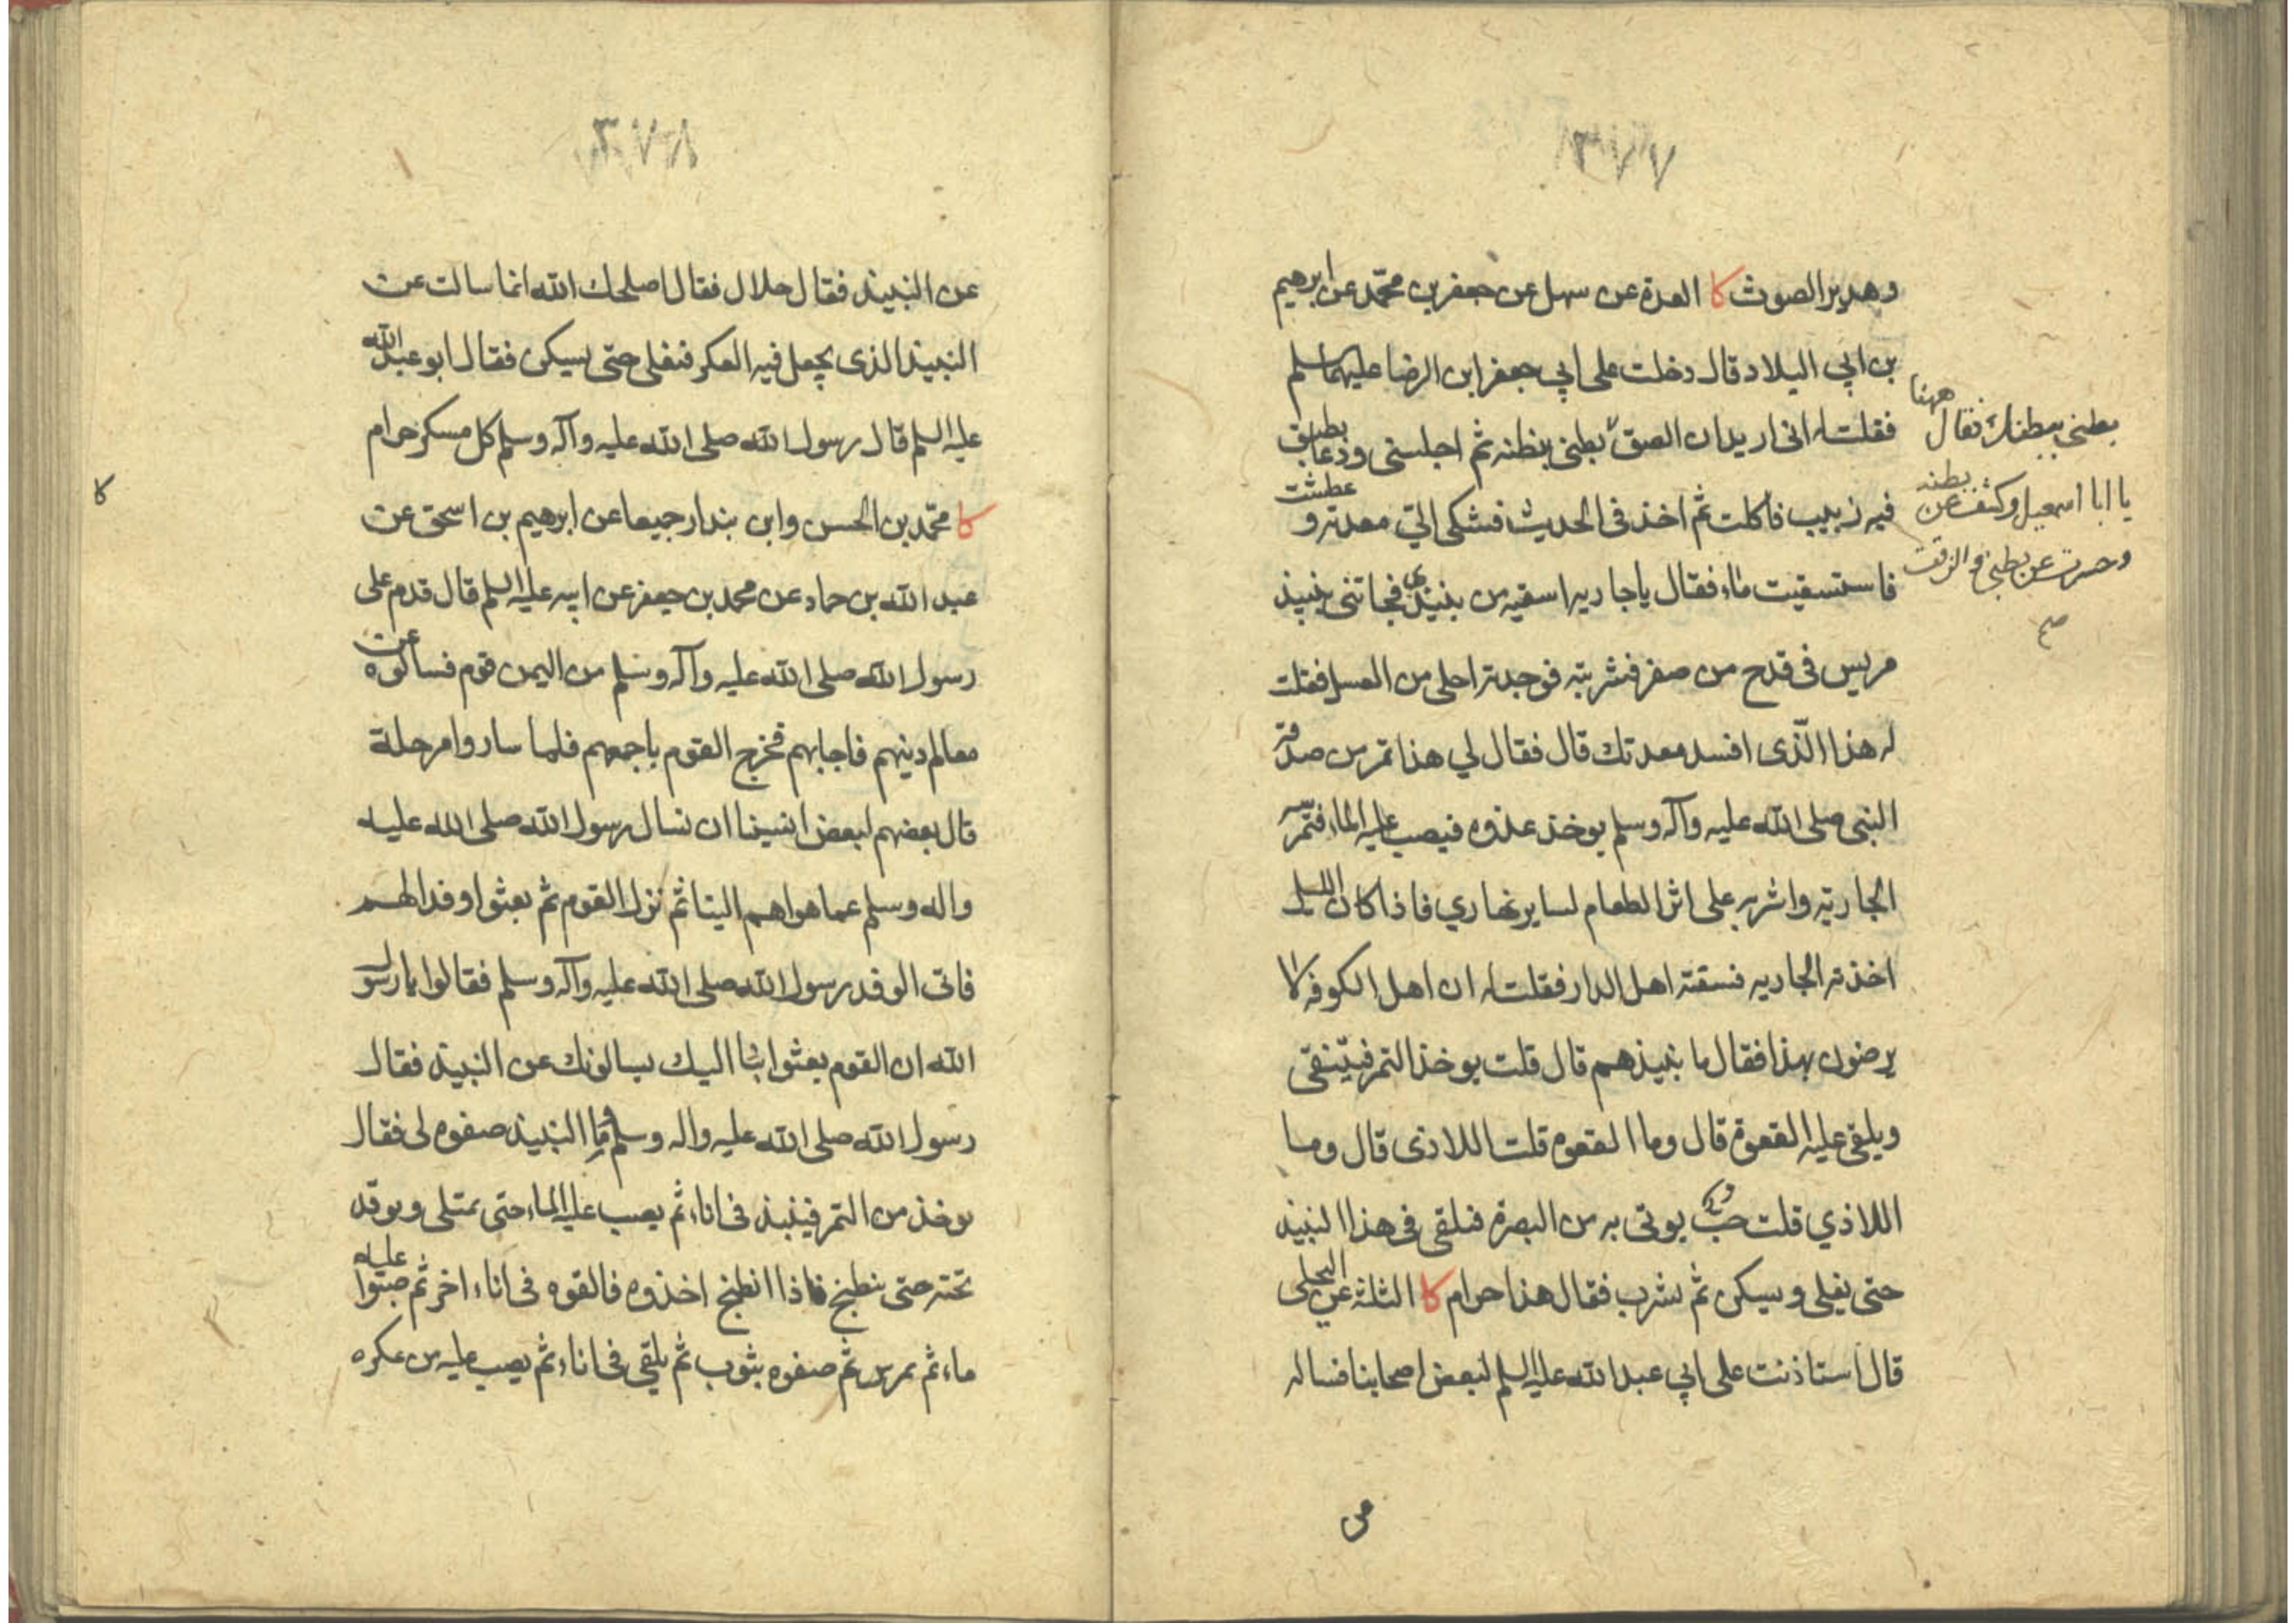 ٣٧٧
وهدير الصوت كا العدة عن سهل عن جعفر بن محمد عن ابرهيم
بن ابي البلاد قال دخلت على ابي جعفر ابن الرضا عليهما سلم
فقلت له اني اريد ان الصق بطني ببطنه ثم اجلسني ودعا بطبق
فيه زبيب فاكلت ثم اخذ في الحديث فشكى الي معدته و عطشت
فاستسقيت ماء فقال ياجاريه اسقيه من نبيذي فجائتني بنبيذ
مريس في قدح من صفر فشربته فوجدته احلى من العسل فقلت
له هذا الذي افسد معدتك قال فقال لي هذا تمر من صدقة
النبي صلى الله عليه وآله وسلم يوخذ غدوه فيصب عليه الماء فتمرسه
الجارية واشربه على اثر الطعام لساير نهاري فاذا كان الليل
اخذته الجاريه فسقته اهل الدار فقلت له ان اهل الكوفه لا
يرضون بهذا فقال ما نبيذهم قال قلت يوخذ التمر فينقى
ويلقى عليه القعوة قال وما القعوه قلت اللاذى قال وما
اللاذي قلت حب يوتى به من البصرة فيلقى في هذا النبيذ
حتى يغلى ويسكن ثم يشرب فقال هذا حرام كا الثلثة عن البجلى
قال استاذنت على ابي عبد الله عليه السلم لبعض اصحابنا فساله
بطني ببطنك فقال ههنا
يا ابا اسمعيل وكشف عن بطنه
وحسرت عن بطني والزقت
صح
٣٧٨
عن النبيذ فقال حلال فقال اصلحك الله انما سالت عن
النبيذ الذى يجعل فيه العكر فيغلى حتى يسكن فقال ابو عبد الله
عليه السلم قال رسول الله صلى الله عليه وآله وسلم كل مسكر حرام
كا محمد بن الحسن وابن بندار جميعا عن ابرهيم بن اسحق عن
عبد الله بن حماد عن محمد بن جعفر عن ابيه عليه السلم قال قدم على
رسول الله صلى الله عليه وآله وسلم من اليمن قوم فسألوه عن
معالم دينهم فاجابهم فخرج القوم باجمعهم فلما ساروا مرحلة
قال بعضهم لبعض انسينا ان نسال رسول الله صلى الله عليه
واله وسلم عما هو اهم الينا ثم نزل القوم ثم بعثوا وفدا لهم
فاتى الوفد رسول الله صلى الله عليه وآله وسلم فقالوا يا رسول
الله ان القوم بعثوا بنا اليك يسالونك عن النبيذ فقال
رسول الله صلى الله عليه واله وسلم وما النبيذ صفوه لى فقال
يوخذ من التمر فينبذ فى اناء ثم يصب عليه الماء حتى يمتلى ويوقد
تحته حتى ينطبخ فاذا انطبخ اخذوه فالقوه فى اناء اخر ثم صبوا عليه
ماء ثم يمرس ثم صفوه بثوب ثم يلقى فى اناء ثم يصب عليه من عكره
كا